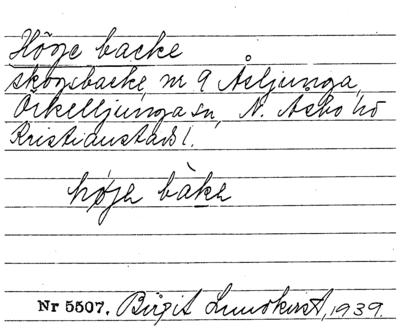 Höje backe
skogsbacke, nr 9 Åsljunga,
Örkelljunga sn, N. Åsbo hd
Kristianstads l.
høje bàke
Nr 5507. Birgit Lundkvist, 1939.